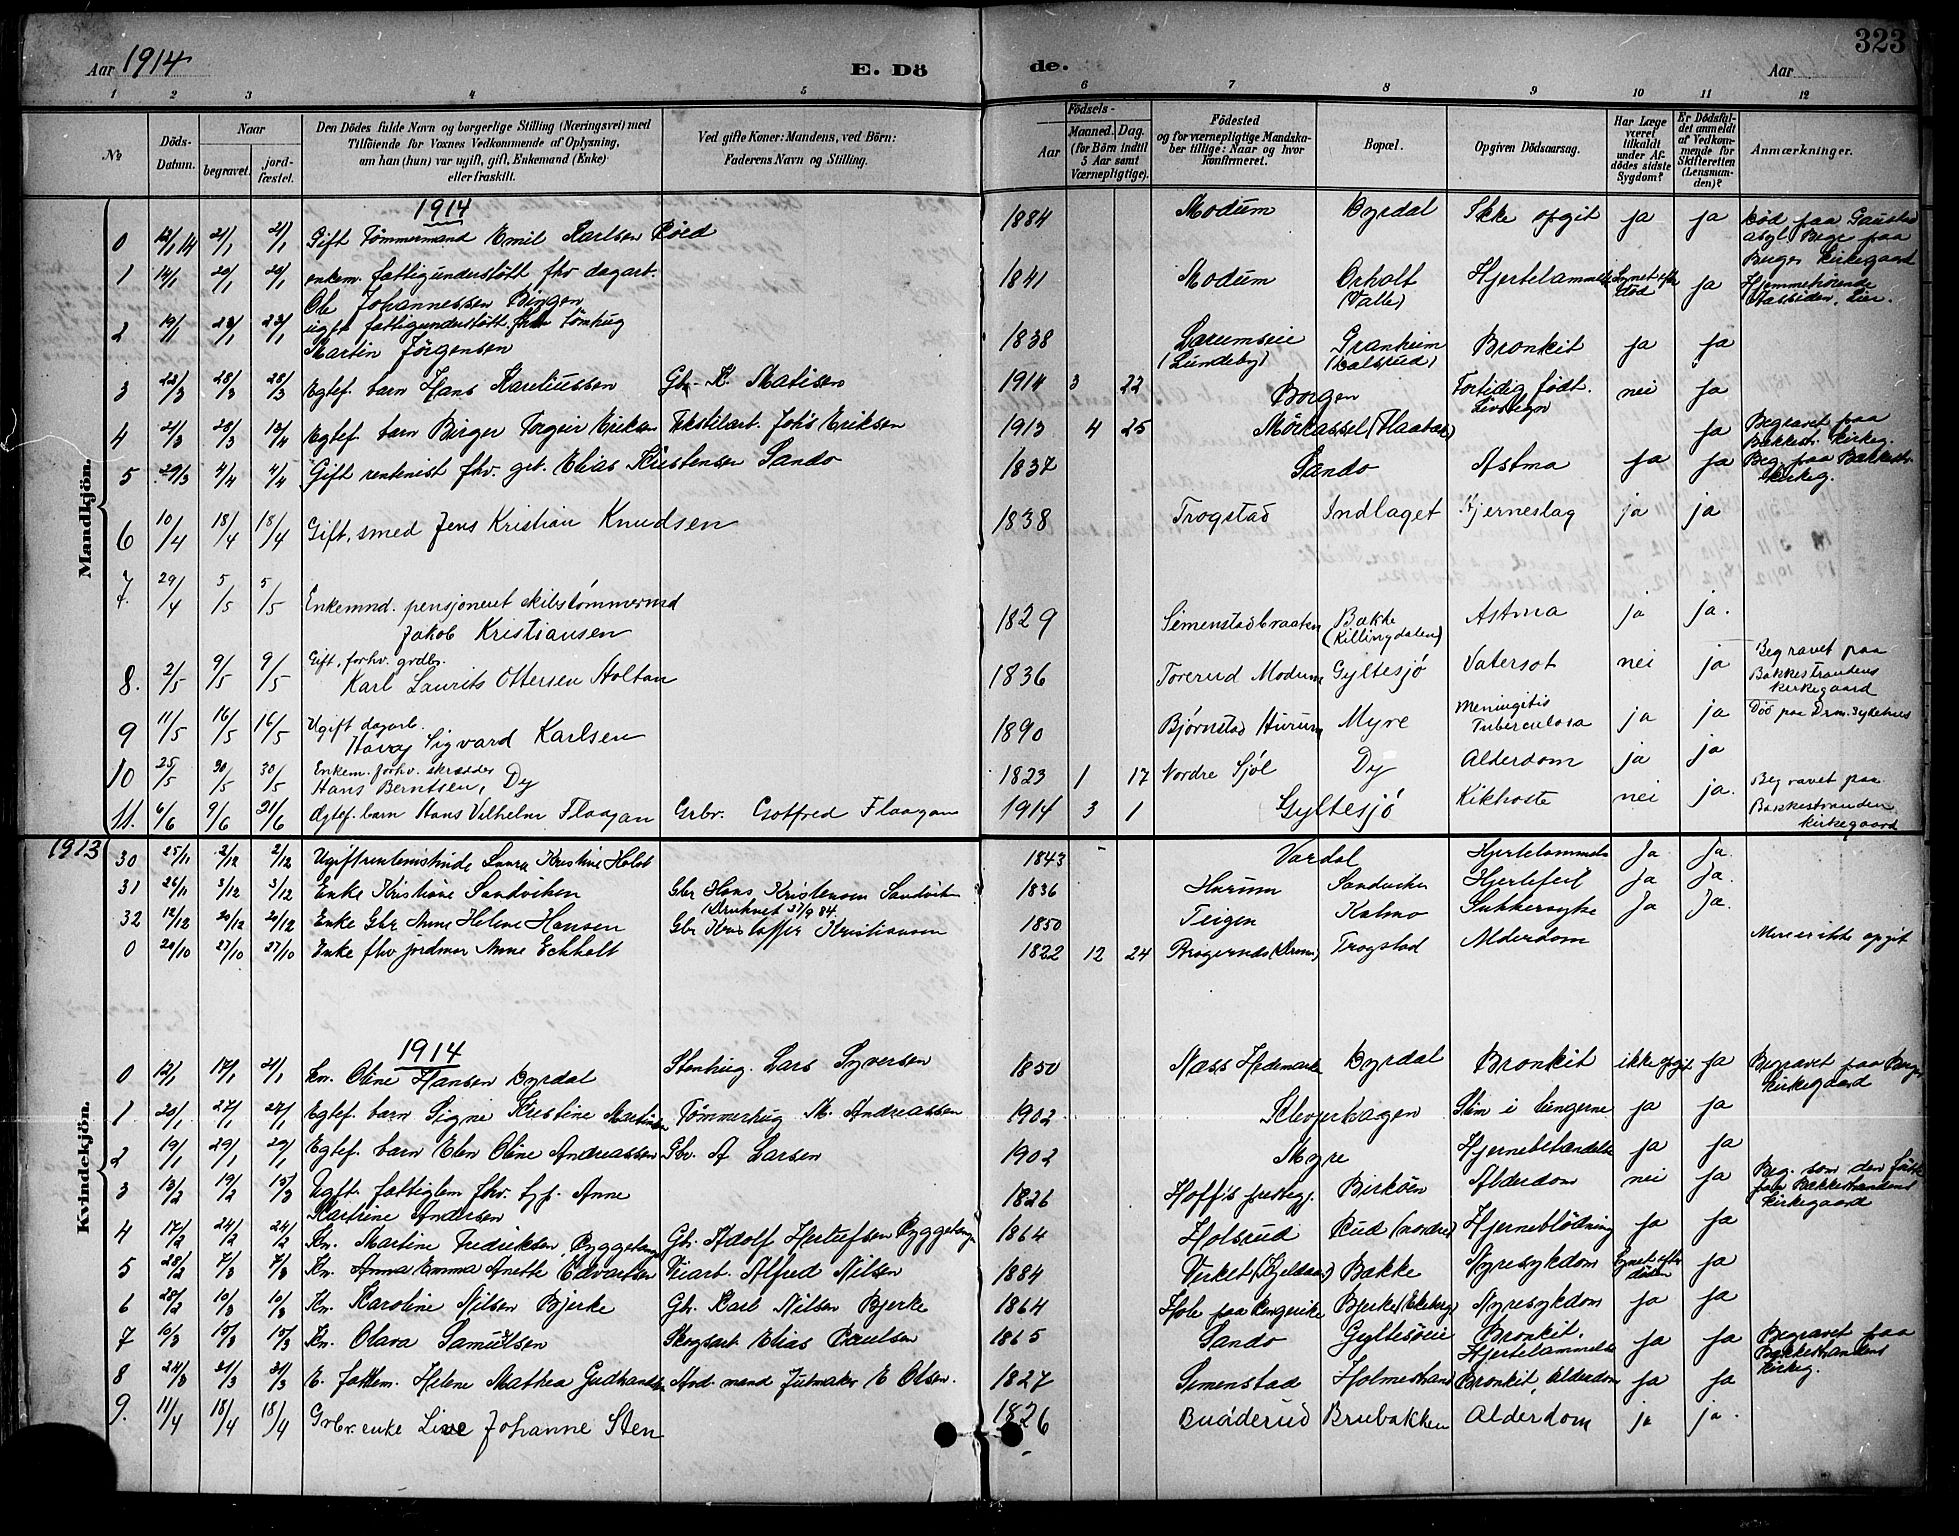 Aar 1914 E. Dö de. Aar 323
1 2 3 4 5 6 7 8 9 10 11 12
№
Döds-Datum.
Naar
begravet.
jord-fæstet.
Den Dödes fulde Navn og borgerlige Stilling (Næringsvei) med
Tilföiende for Voxnes Vedkommende af Oplysning,
om han (hun) var ugift, gift, Enkemand (Enke)
eller fraskilt.
Ved gifte Koner: Mandens, ved Börn:
Faderens Navn og Stilling.
Födsels-
Aar
Maaned. Dag.
(for Börn indtil
5 Aar samt
Værnepligtige).
Födested
og for værnepligtige Mandska-
ber tillige: Naar og hvor
konfirmeret.
Bopæl.
Opgiven Dödsaarsag.
Har Læge
været
tilkaldt
under Af-
dödes sidste
Sygdom?
Er Dödsfal-
det anmeldt
af Vedkom-
mende for
Skifteretten
(Lensman-
den)?
Anmærkninger.
Mandkjön.
1914
0 12/1 14 21/1 21/1 Gift Tømmermand Emil Karlsen Röed 1884 Modum Byrdal Ikke opgit ja ja Död paa Gaustad
asyl Begr paa
Berger Kirkegaard
1 14/1 20/1 20/1 enkem. fattigunderstött fhv dagarb. 1841 Modum Orholt Hjertelammelse Synet efter ja Hjemmehørende
Ole Johannessen Bergan (Valle) död Lier.
2 19/1 22/1 22/1 ugft fattigunderstött fhv Tömhug 1838 Larumseie Granheim Bronkit ja ja
Martin Jörgensen (Lundeby) (Dalsrud)
3 22/3 28/3 28/3 Egtef. barn Hans Kareliussen Gbr. K. Matisen 1914 3 22 Borgen Fortidig födt. nei ja
Livstegn
4 21/3 28/3 13/4 Egtef. barn Birger Torgeir Eriksen Tekstilarb. Johs Eriksen 1913 4 25 Mörkassel ja Begravet paa
Bakkestr. Kirkeg.
5 29/3 4/4 4/4 Gift rentenist fhv. grb. Elias Kristensen Sando 1837 Sando Astma ja ja Beg. paa Bakkestr
kirkeg.
6 10/4 18/4 18/4 Gift, smed Jens Kristian Knudsen 1838 Trogstad Indlaget Hjerneslag ja ja
7. 29/4 5/5 5/5 Enkemnd. pensjoneret skibstömmermd 1829 Semenstadbraaten Bakke Astma ja ja.
Jakob Kristiansen (Killingdalen)
8. 2/5 9/5 9/5 Gift, forhv. grdbr. 1836 Torerud Modum Gyltesjö Vatersot nei ja Begravet paa
Karl Laurits Ottersen Holtan Bakkestrandens
kirkegaard
9 11/5 16/5 16/5 Ugift dagarb. 1890 Bjørnstad Hurum Myre Meningitis ja ja Död paa Drm. Sykehus
Harry Sigvard Karlsen Tuberculosa
10 25/5 30/5 30/5 Enkem. forhv. skrædder 1823 1 17 Nordre Sjöl Dy Alderdom ja ja
Hans Berntsen, Dy
11. 6/6 9/6 21/6 Egtef. barn Hans Vilhelm Flaagan Grbr. Gotfred Flaagan 1914 3 1 Gyltesjö Kikhoste nei ja. Begravet paa
Bakkestranden
kirkegaard
1913
30 25/11 2/12 2/12 Ugift rentenistinde Laura Kristine Holst 1843 - Vardal Hjertelammelse Ja Ja.
31 26/11 3/12 3/12 Enke Kristiane Sandviken Gbr Hans Kristensen Sandvik 1836 Hurum Sandviken Hjertefeil Ja Ja.
(Druknet 27/9 84.
32 12/12 20/12 20/12 Enke Gbr Anne Helene Hansen Gbr Kristoffer Kristiansen 1850 Teigen Kalmo Sukkersyke Ja Ja.
0 20/10 27/10 27/10 Enke fhv jordmor Anne Eckholt 1822 12 24 Bragernes (Dram) Trogstad Alderdom Mere er ikke opgit
Kvindekjön.
1914
0 12/1 17/1 21/1 Kn. Oline Hansen Byrdal Stenhug. Lars Syversen 1850 Næss Hedemarken Byrdal Bronkit ikke opgit ja Begravet paa Berger
Kirkegaard
1 20/1 27/1 27/1 Egtef. barn Signe Kristine Martinsen Tømmerhug M. Andreassen 1902 Kleverhagen Slim i lungerne ja ja
2 19/1 29/1 29/1 Egtef. barn Elen Oline Andreassen Gbr. A Larsen 1902 Myre Hjernebetændelse ja ja
3 13/2 19/2 15/3 Ugft. fattiglem fhv. Anne 1826 Hoffis prestegj. Birköen Alderdom nei ja Beg. som den første
Kartrine Andersen paa Bakkestrandens
Kirkegaard
4 17/2 24/2 24/2 Kn. Martine Fredriksen Ryggetangen Gbr. Adolf Herlufsen Ryggetangen 1864 Holsrud Rud (nordre) Hjerneblödning ja ja
5 28/2 7/3 7/3 Kn. Anna Emma Anette Edvartsen Veiarb. Alfred Nilsen 1884 Verket Bakke Nyresykdom Synet efter ja
döden
6 28/2 10/3 10/3 Kn. Karoline Nilsen Bjerke Gbr. Karl Nilsen Bjerke 1864 Hole paa Ringerike Bjerke (Ekeberg) Nyresykdom ja ja
7 10/3 15/3 15/3 Kn. Olava Samuelsen Skogsarb Elias Paulsen 1865 Sando Gyltesöeie Bronkit. ja ja Begravet paa
Hjertelammelse Bakkestrandens
Kirkeg.
8 24/3 31/3 31/3 E. fattem. Helene Mathea Gudbrandsen And. mand Julmaker E Olsen. 1827 Semenstad Holmestrand Bronkit, alderdom ja ja
9. 11/4 18/4 18/4 Grbr. enke Live Johanne Sten 1826 Buåderud Brubakken Alderdom ja ja.